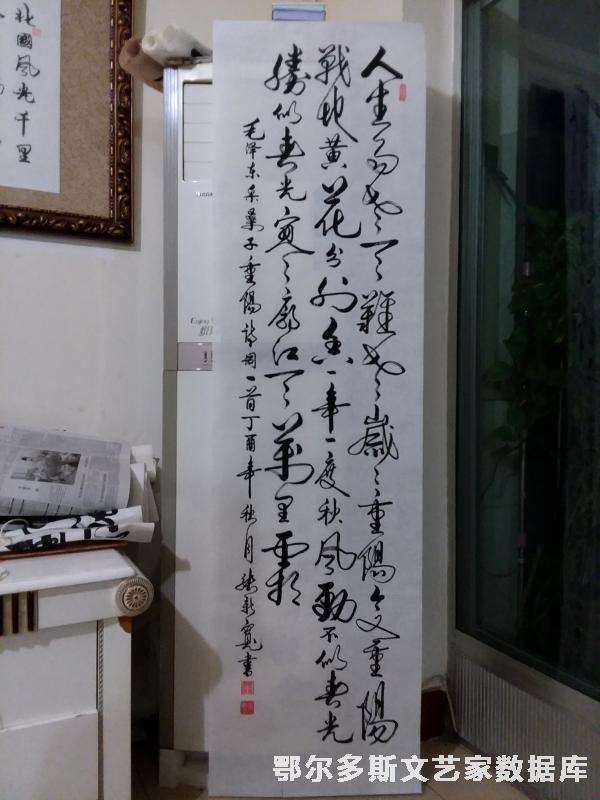 人生易老天難老歲〻重陽今又重陽
戰地黃花分外香一年一度秋風勁不似春光
勝似春光寥廓江天萬里霜
毛泽东采桑子重陽詩词一首丁酉年秋月
書
北國風光千里
鄂尔多斯文艺家数据库